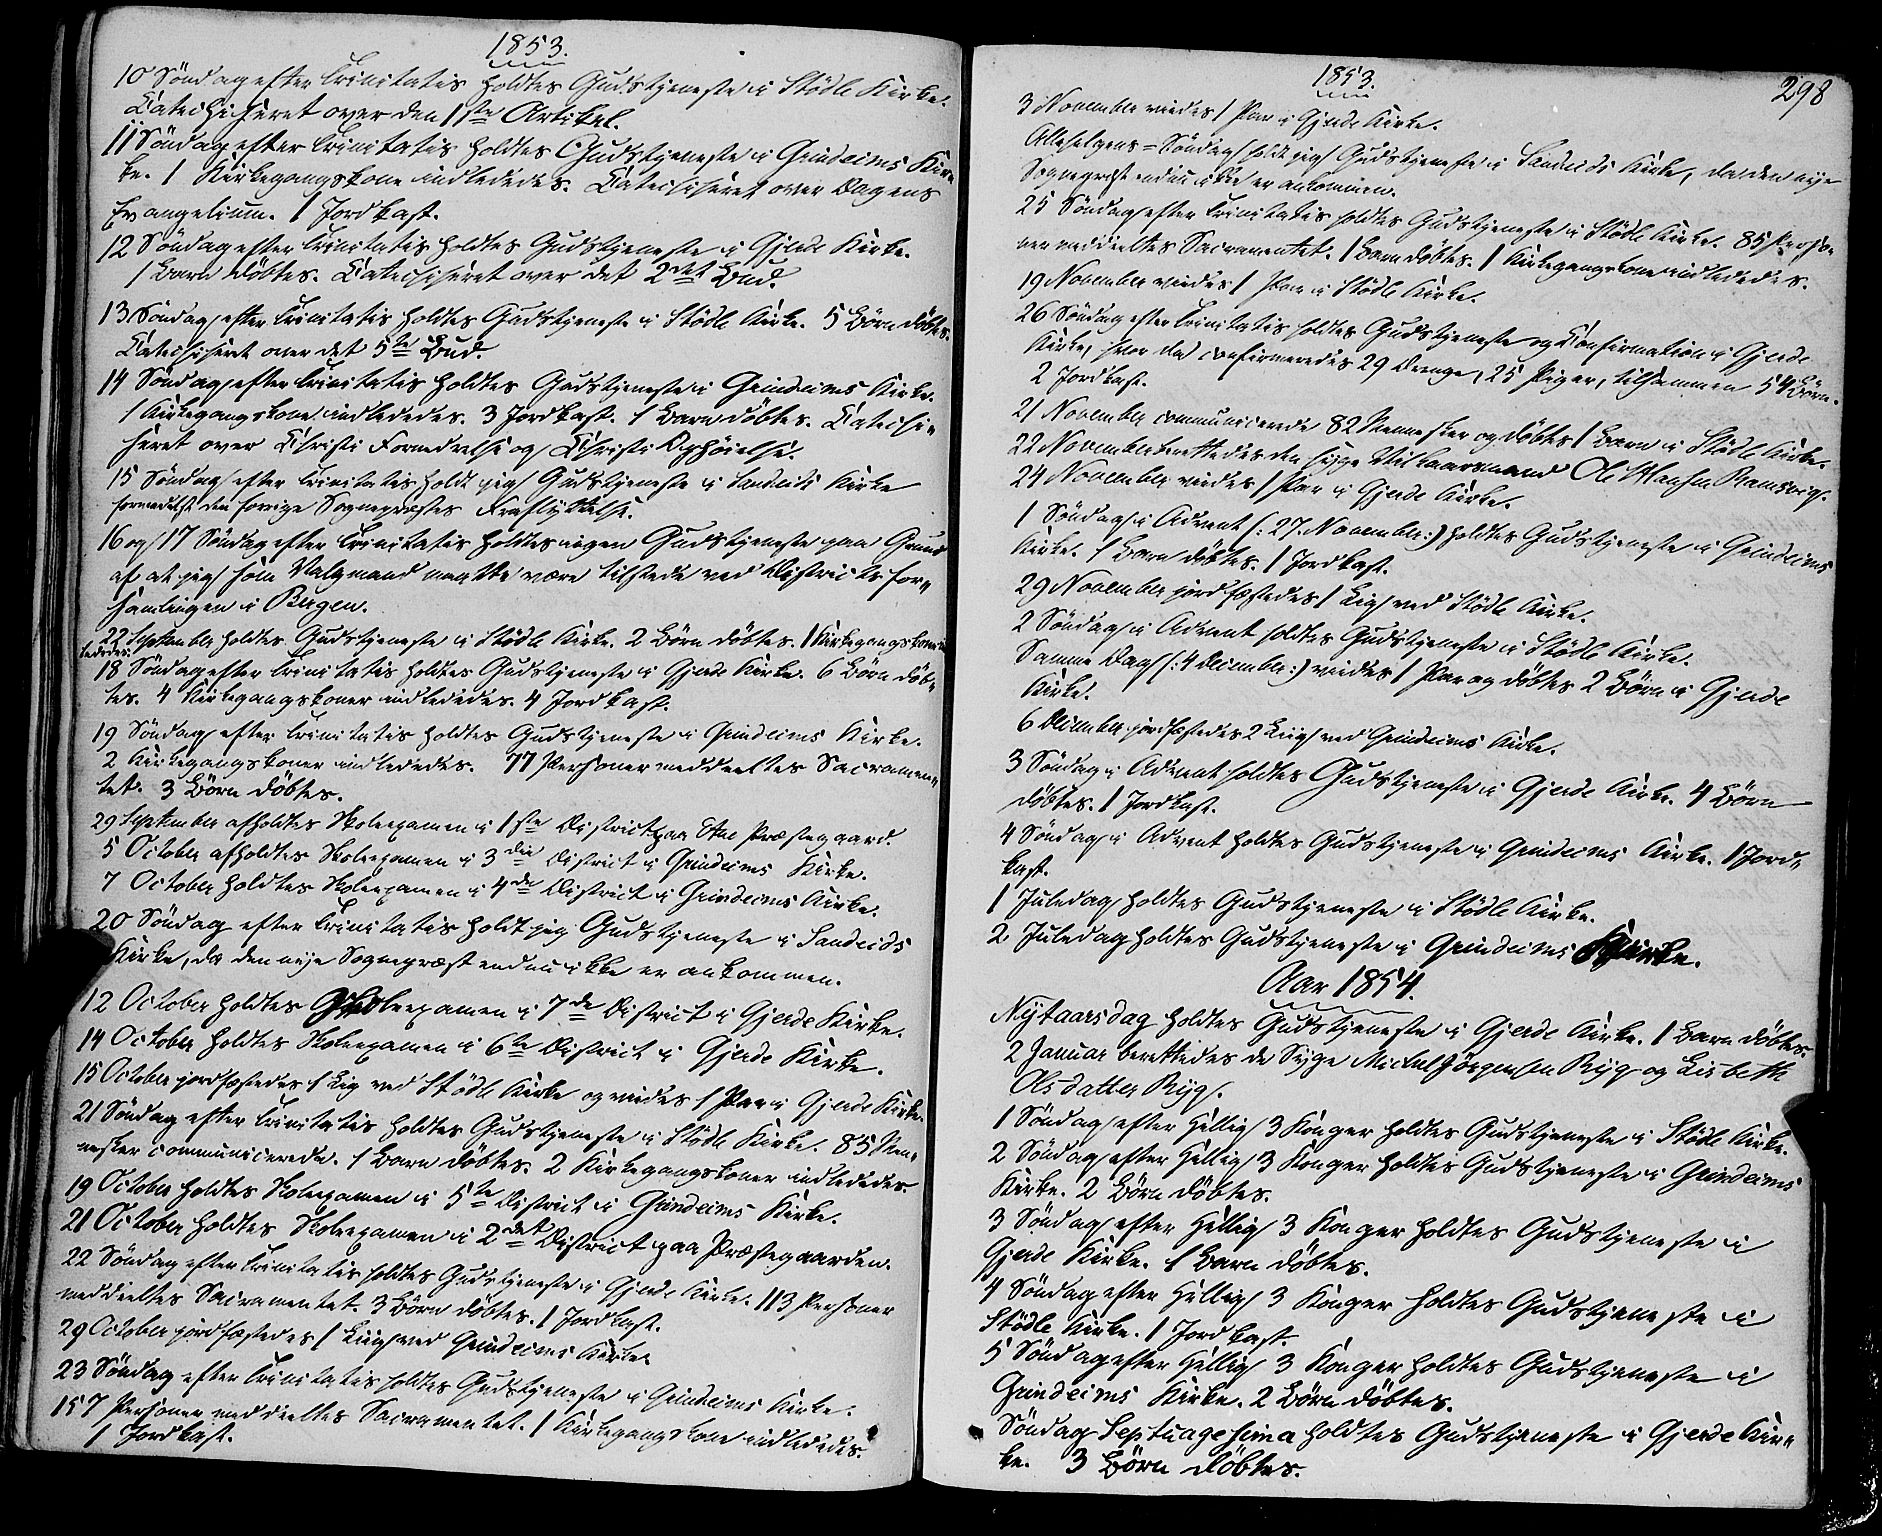 1853.
10 Söndag efter Trinitatis holdtes Gudstjeneste i Stödle Kirke.
Catechiseret over den 1ste Artikel.
11 Söndag efter Trinitatis holdtes Gudstjeneste i Grindeims Kir-
ke. 1 Kirkegangskone indlededes. Catechiseret over Dagens
Evangelium. 1 Jordkast.
12 Söndag efter Trinitatis holdtes Gudstjeneste i Gjerde Kirke.
1 Barn döbtes. Catechiseret over det 2det Bud.
13 Söndag efter Trinitatis holdtes Gudstjeneste i Stödle Kirke. 5 Börn döbtes.
Catechiseret over det 5te Bud.
14 Söndag efter Trinitatis holdtes Gudstjeneste i Grindeims Kirke.
1 Kirkegangskone indlededes. 3 Jordkast. 1 Barn döbtes. Catechi-
seret over Christi Fornedrelse og Christi Ophöielse.
15 Söndag efter Trinitatis holdt jeg Gudstjeneste i Sandeids Kirke
formedelst den forrige Sognepræstes Fraflyttelse.
16 og 17 Söndag efter Trinitatis holdtes ingen Gudstjeneste paa Grund
af at jeg som Valgmand maatte være tilstede ved Districtsfor-
samlingen i Bergen.
22 September holdtes Gudstjeneste i Stödle Kirke. 2 Börn döbtes. 1 Kirkegangskone ind-
lededes.
18 Söndag efter Trinitatis holdtes Gudstjeneste i Gjerde Kirke. 6 Börn döb-
tes. 4 Kirkegangskoner indlededes. 4 Jordkast.
19 Söndag efter Trinitatis holdtes Gudstjeneste i Grindeims Kirke.
2 Kirkegangskoner indlededes. 77 Personer meddeeltes Sacramen-
tet. 3 Börn döbtes.
29 September afholdtes Skoleexamen i 1ste District paa Etne Præstegaard.
5 October afholdtes Skoleexamen i 3die District i Grindeims Kirke.
7 October holdtes Skoleexamen i 4de District i Grindeims Kirke.
20 Söndag efter Trinitatis holdt jeg Gudstjeneste i Sandeids
Kirke, da den nye Sognepræst endnu ikke er ankommen.
12 October holdtes Skoleexamen i 7de District i Gjerde Kirke.
14 October holdtes Skoleexamen i 6te District i Gjerde Kirke.
15 October jordfæstedes 1 Lig ved Stödle Kirke og viedes 1 Par i Gjerde Kirke.
21 Söndag efter Trinitatis holdtes Gudstjeneste i Stödle Kirke. 85 Men-
nesker communicerede. 1 Barn döbtes. 2 Kirkegangskoner indlededes.
19 October holdtes Skoleexamen i 5te District i Grindeims Kirke.
21 October holdtes Skoleexamen i 2det District paa Præstegaarden.
22 Söndag efter Trinitatis holdtes Gudstjeneste i Gjerde Kirke. 113 Personer
meddeeltes Sacramentet. 3 Börn döbtes. 1 Jordkast.
29 October jordfæstedes 1 Liig ved Grindeims Kirke.
23 Söndag efter Trinitatis holdtes Gudstjeneste i Grindeims Kirke.
157 Personer meddeeltes Sacramentet. 1 Kirkegangskone indlededes.
1 Jordkast.
1853.
298
3 November viedes 1 Par i Gjerde Kirke.
Allehelgens=Söndag holdt jeg Gudstjeneste i Sandeids Kirke, da den nye
Sognepræst endnu ikke er ankommen.
25 Söndag efter Trinitatis holdtes Gudstjeneste i Stödle Kirke. 85 Perso-
ner meddeeltes Sacramentet. 1 Barn döbtes. 1 Kirkegangskone indlededes.
19 November viedes 1 Par i Stödle Kirke.
26 Söndag efter Trinitatis holdtes Gudstjeneste og Confirmation i Gjerde
Kirke, hvor da confirmeredes 29 Drenge, 25 Piger, tilsammen 54 Börn.
2 Jordkast.
21 November communicerede 82 Mennesker og döbtes 1 Barn i Stödle Kirke.
22 November berettedes den syge Vilkaarsmand Ole Hansen Ramsvig.
24 November viedes 1 Par i Gjerde Kirke.
1 Söndag i Advent (: 27. November :) holdtes Gudstjeneste i Grindeims
Kirke. 1 Barn döbtes. 1 Jordkast.
29 November jordfæstedes 1 Liig ved Stödle Kirke.
2 Söndag i Advent holdtes Gudstjeneste i Stödle Kirke.
Samme Dag (: 4 December :) viedes 1 Par og döbtes 2 Börn i Gjerde
Kirke.
6 December jordfæstedes 2 Liig ved Grindeims Kirke.
3 Söndag i Advent holdtes Gudstjeneste i Gjerde Kirke. 4 Börn
döbtes. 1 Jordkast.
4 Söndag i Advent holdtes Gudstjeneste i Grindeims Kirke. 1 Jord-
kast.
1 Juledag holdtes Gudstjeneste i Stödle Kirke.
2. Juledag holdtes Gudstjeneste i Grindeims Kirke.
Aar 1854.
Nytaarsdag holdtes Gudstjeneste i Gjerde Kirke. 1 Barn döbtes.
2 Januar berettedes de Syge Mickel Jörgensen Ryg og Lisbeth
Olsdatter Ryg.
1 Söndag efter Hellig 3 Konger holdtes Gudstjeneste i Stödle Kirke.
2 Söndag efter Hellig 3 Konger holdtes Gudstjeneste i Grindeims
Kirke. 2 Börn döbtes.
3 Söndag efter Hellig 3 Konger holdtes Gudstjeneste i
Gjerde Kirke. 1 Barn döbtes.
4 Söndag efter Hellig 3 Konger holdtes Gudstjeneste i
Stödle Kirke. 1 Jordkast.
5 Söndag efter Hellig 3 Konger holdtes Gudstjeneste i
Grindeims Kirke. 2 Börn döbtes.
Söndag Septuagesima holdtes Gudstjeneste i Gjerde Kir-
ke. 3 Börn döbtes.